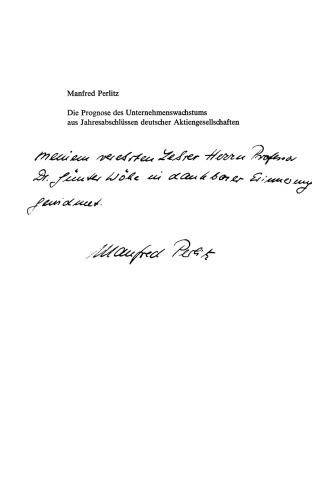 Manfred Perlitz
Die Prognose des Unternehmenswachstums
aus Jahresabschlüssen deutscher Aktiengesellschaften
Meinem verehrten Lehrer Herrn Professor
Dr. Günter Wöhe in dankbarer Erinnerung
gewidmet.
Manfred Perlitz